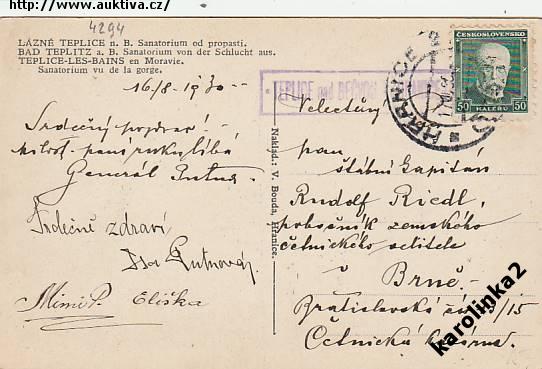 http://www.auktiva.cz/
4294
LÁZNĚ TEPLICE n. B. Sanatorium od propasti.
BAD TEPLITZ a. B. Sanatorium von der Schlucht aus.
TEPLICE-LES-BAINS en Moravie.
Sanatorium vu de la gorge.
16/8 - 1930
Srdečný pozdrav!
milost. paní ruku líbá
Generál
Srdečně zdraví
Mimi P. Eliška
Naklad.: V. Bouda, Hranice.
TEPLICE nad BEČVOU
HRANICE
ČESKOSLOVENSKO
50 HALÉŘŮ 50
Veletučný
pan
štábní kapitán
Rudolf Riedl,
pobočník zemského
četnického velitele
v Brně
Bratislavská 15
Četnická
karolinka2